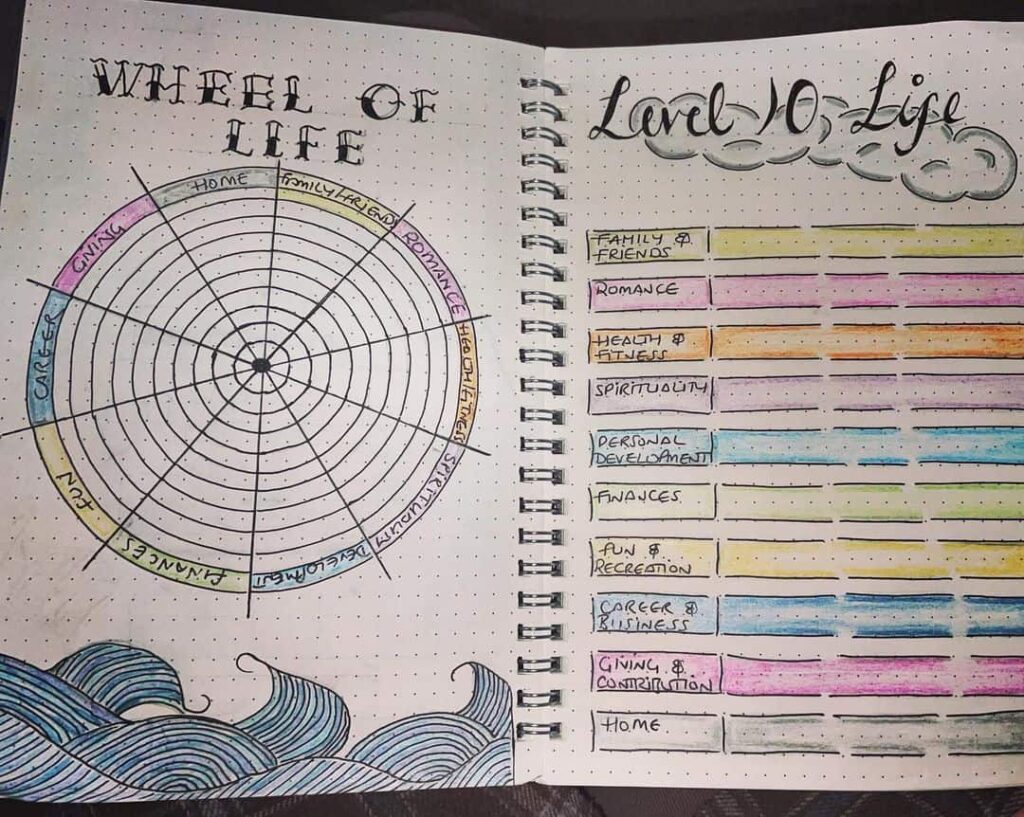 WHEEL OF
LIFE
HOME
FAMILY/FRIENDS
ROMANCE
HEALTH/FITNESS
SPIRITUALISM
DEVELOPMENT
FINANCES
FUN
CAREER
GIVING
Level 10 Life
FAMILY &
FRIENDS
ROMANCE
HEALTH &
FITNESS
SPIRITUALITY
PERSONAL
DEVELOPMENT
FINANCES
FUN &
RECREATION
CAREER &
BUSINESS
GIVING &
CONTRIBUTION
HOME